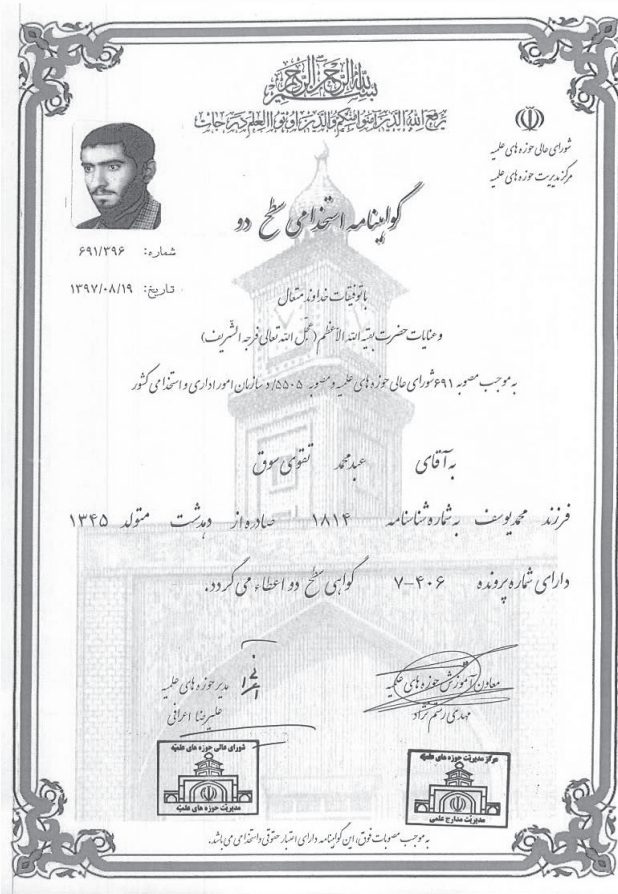 بسم الله الرحمن الرحیم
یرفع الله الذین آمنوا منکم والذین اوتوا العلم درجات
شورای عالی حوزه های علمیه
مرکز مدیریت حوزه های علمیه
گواهینامه استخدامی سطح دو
شماره: ۶۹۱/۳۹۶
تاریخ: ۱۳۹۷/۰۸/۱۹
با توفیقات خداوند متعال
و عنایات حضرت بقیة الله الأعظم (عجّل الله تعالی فرجه الشّریف)
به موجب مصوبه ۶۹۱ شورای عالی حوزه های علمیه و مصوبه ۵۵۰۵/د سازمان امور اداری و استخدامی کشور
به آقای عبدمحمد تقوی سوق
فرزند محمدیوسف به شماره شناسنامه ۱۸۱۴ صادره از دهدشت متولد ۱۳۴۵
دارای شماره پرونده ۷-۴۰۶ گواهی سطح دو اعطاء می گردد.
معاون آموزش حوزه های علمیه
مهدی رستم نژاد
مدیر حوزه های علمیه
علیرضا اعرافی
مرکز مدیریت حوزه های علمیه
مدیریت مدارج علمی
شورای عالی حوزه های علمیه
مدیریت حوزه های علمیه
به موجب مصوبات فوق، این گواهینامه دارای اعتبار حقوقی و استخدامی می باشد.